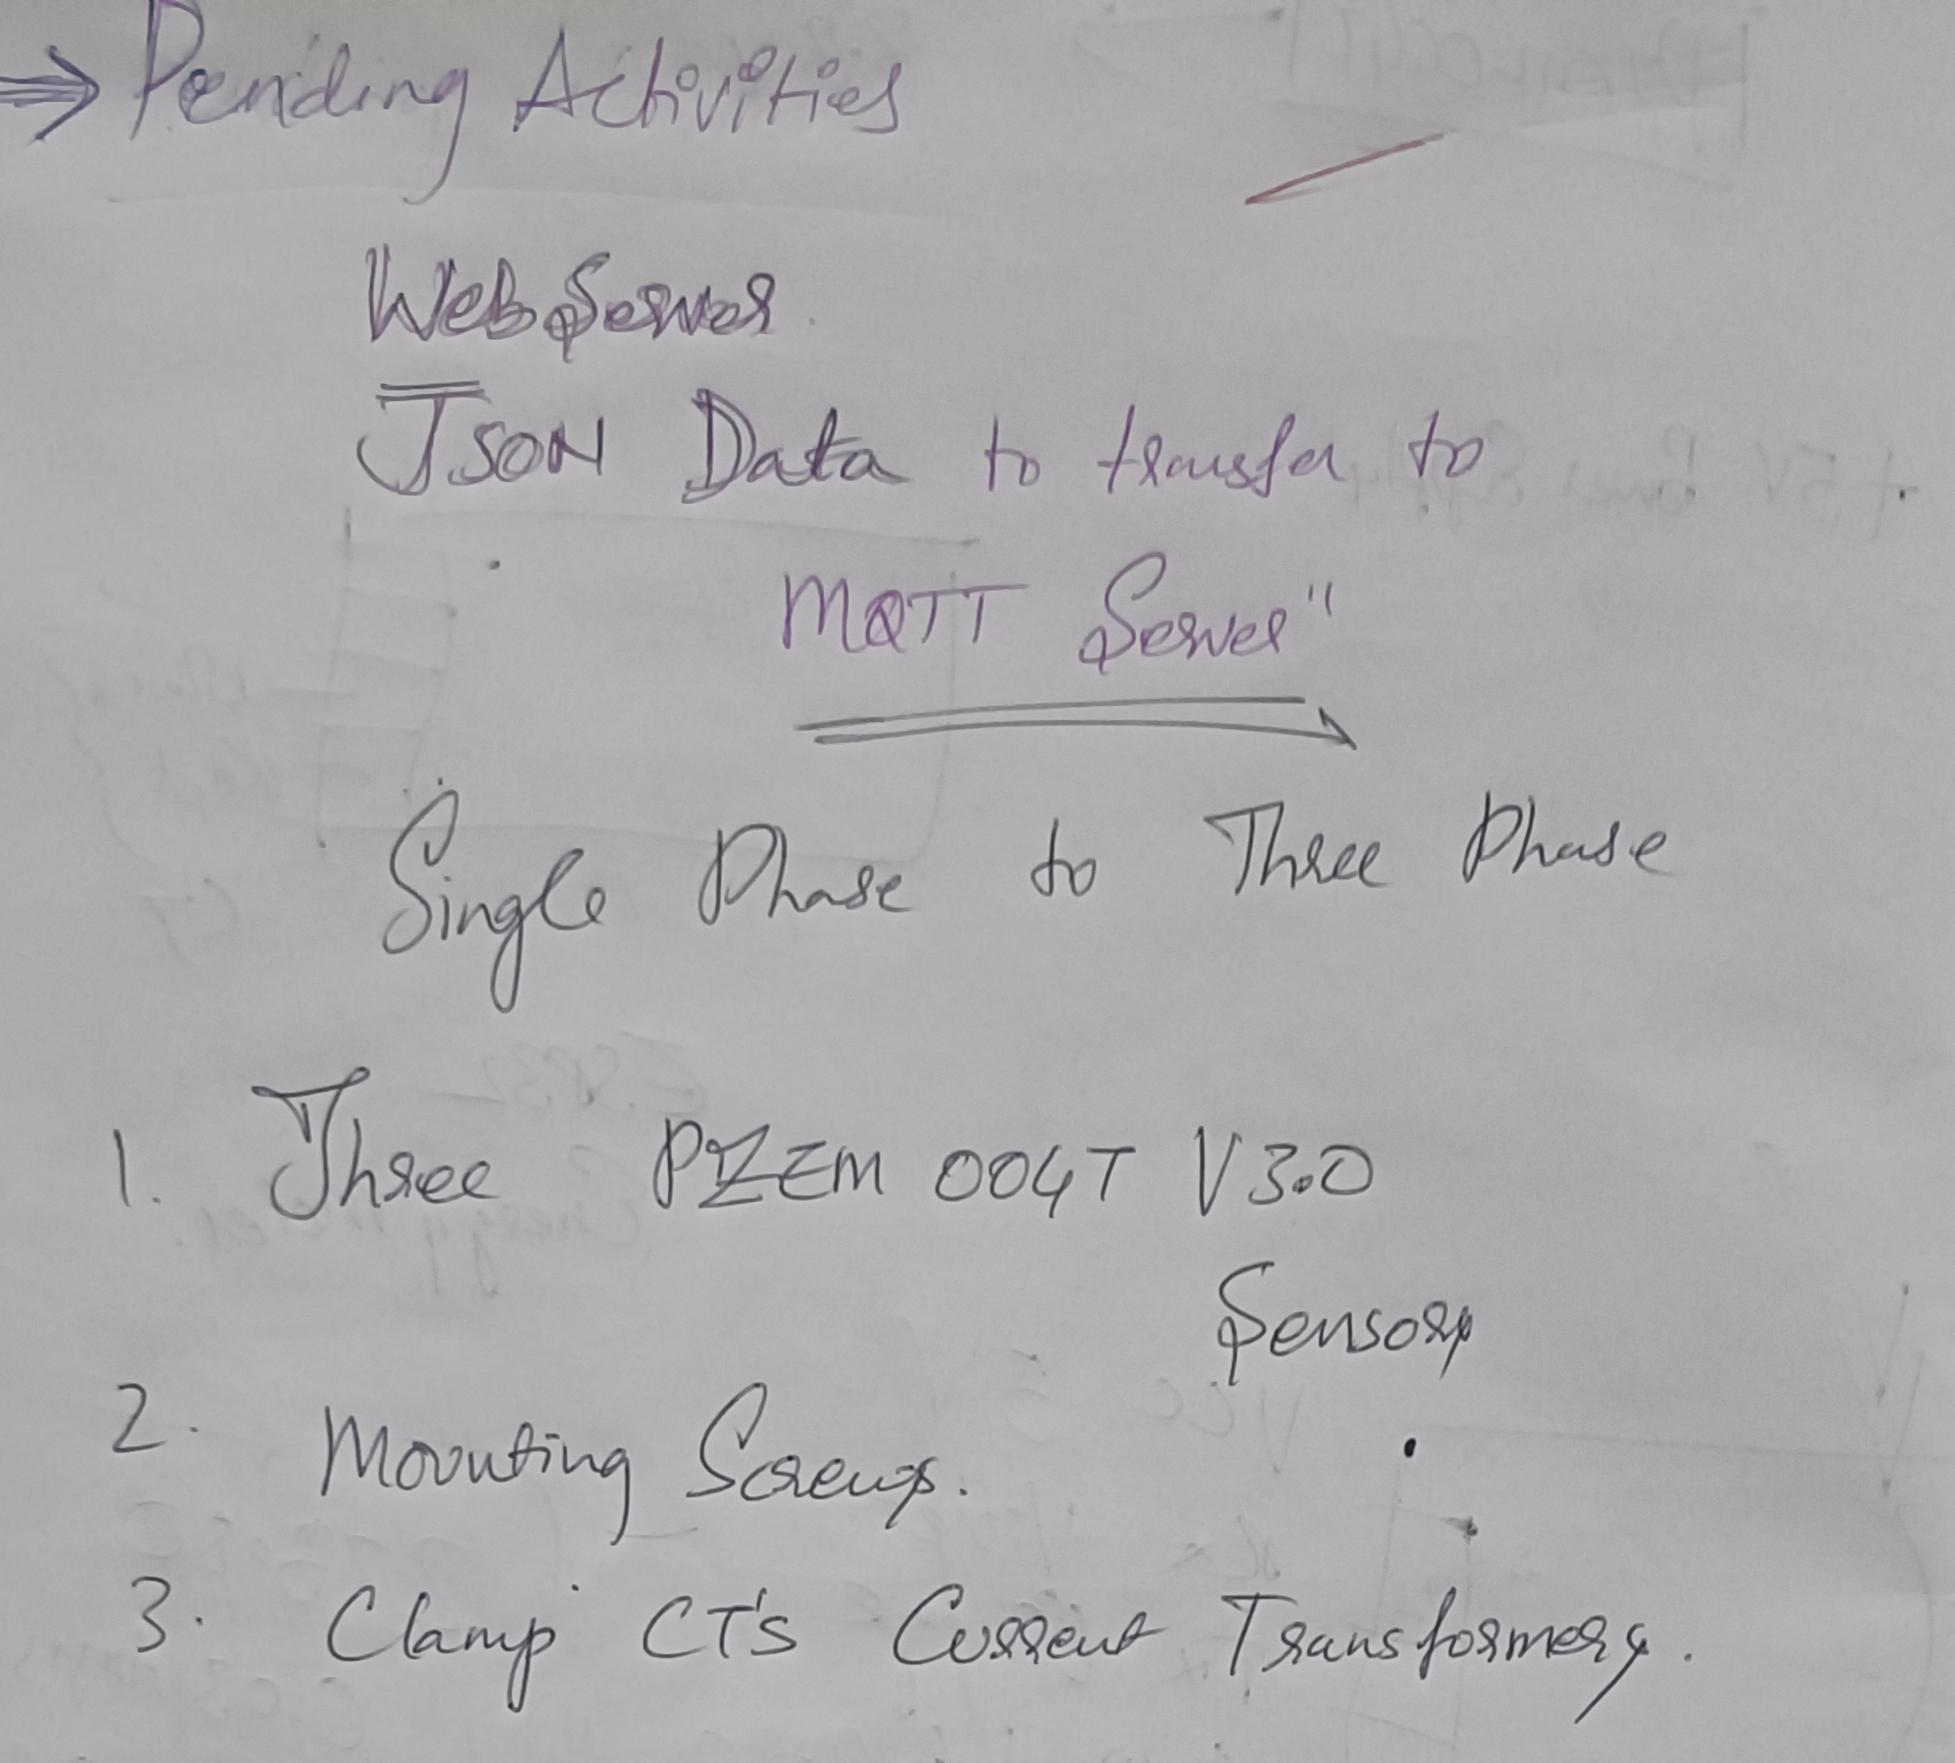 ⇒ Pending Activities
WebServer
JSON Data to transfer to
MQTT Server"
Single Phase to Three Phase
1. Three PZEM 004T V3.0
Sensors
2. Mounting Screws.
3. Clamp CT's Current Transformers.